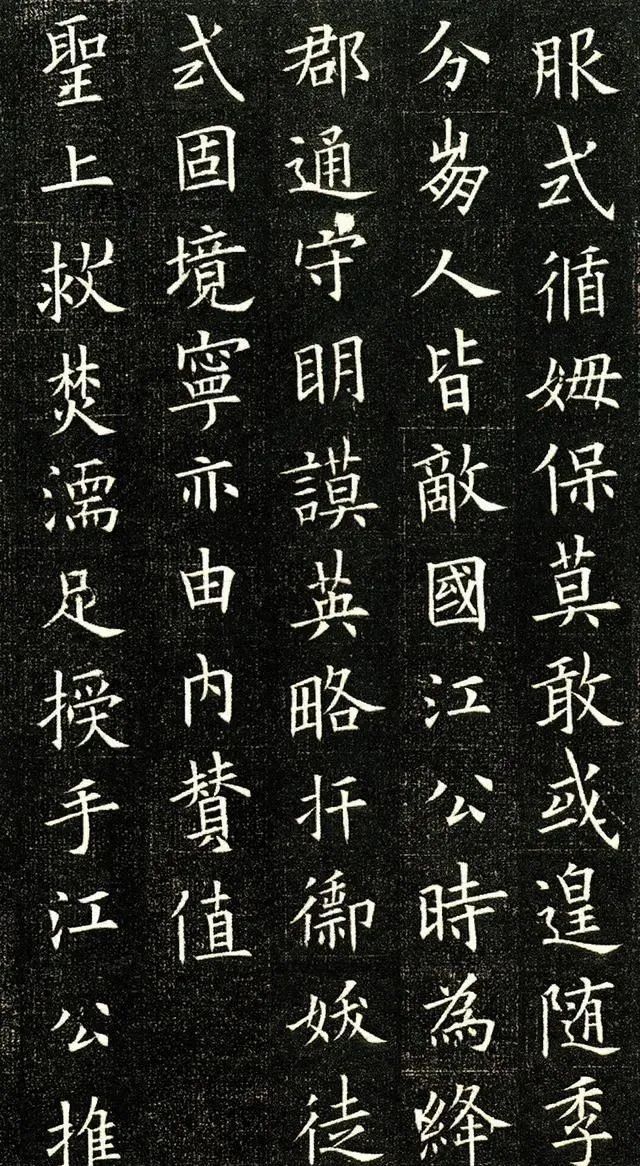 服式循姆保莫敢或遑随季
分崩人皆敵國江公時為絳
郡通守明謨英略扞禦妖徒
式固境寧亦由内賛值
聖上救焚濡足授手江公推